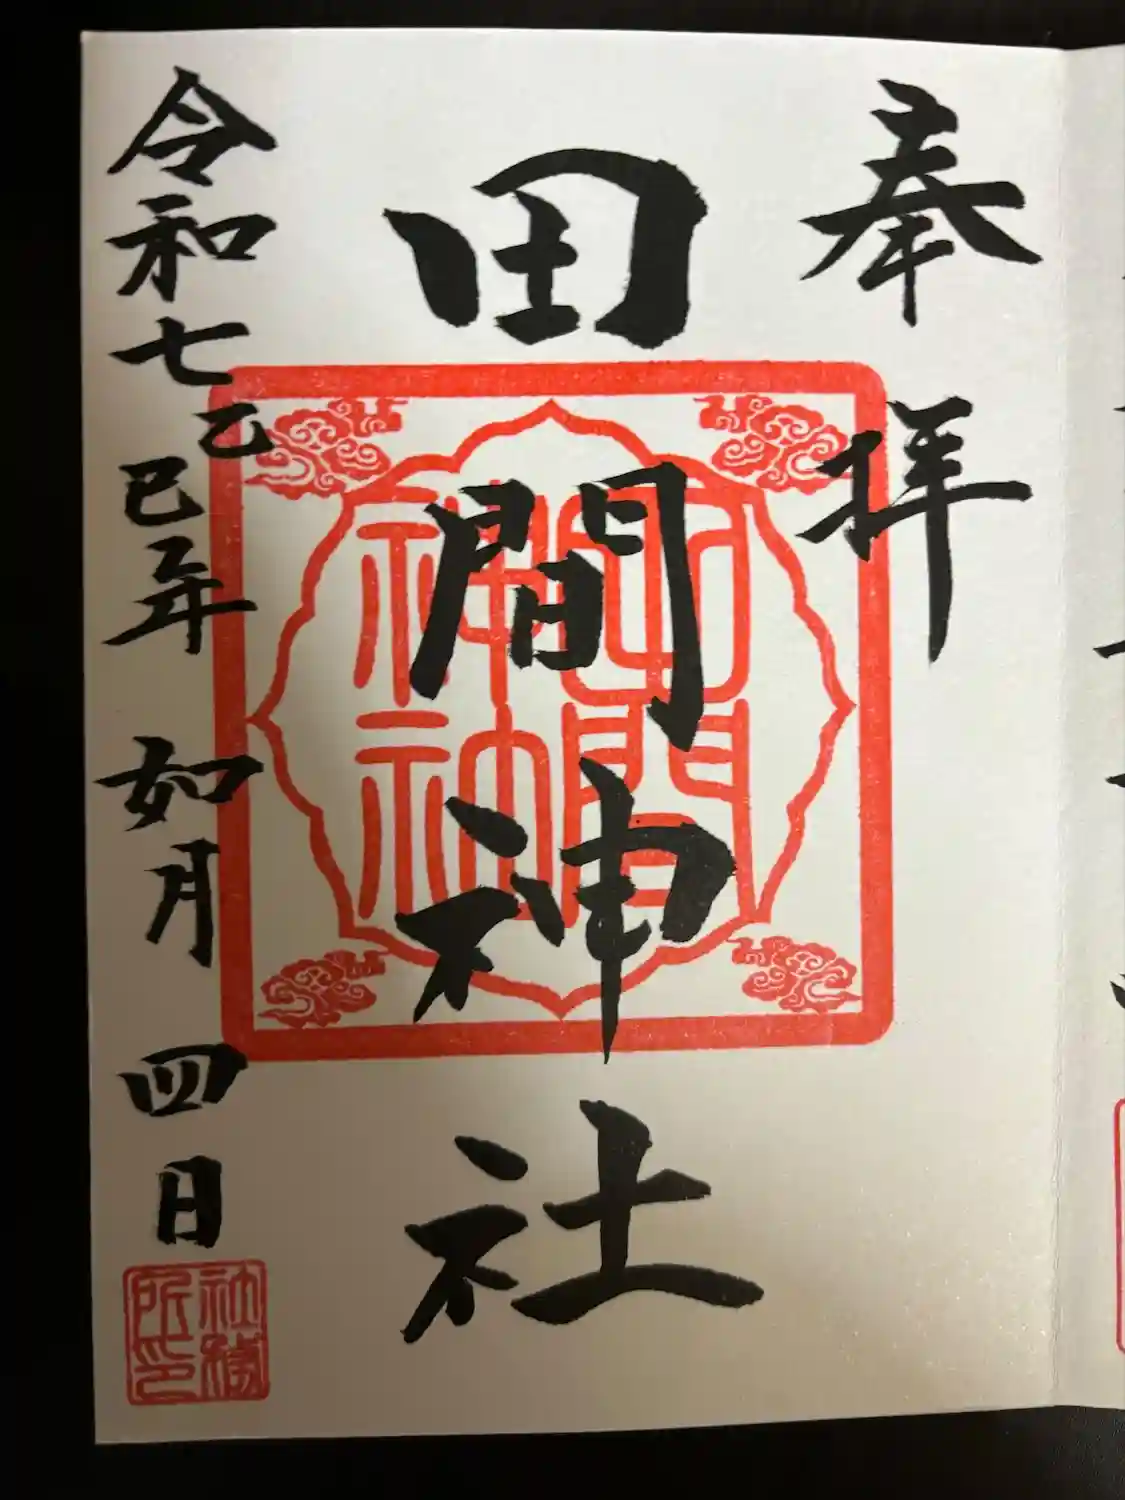 奉拝
田間神社
田間神社
令和七乙巳年 如月 四日
社務所印